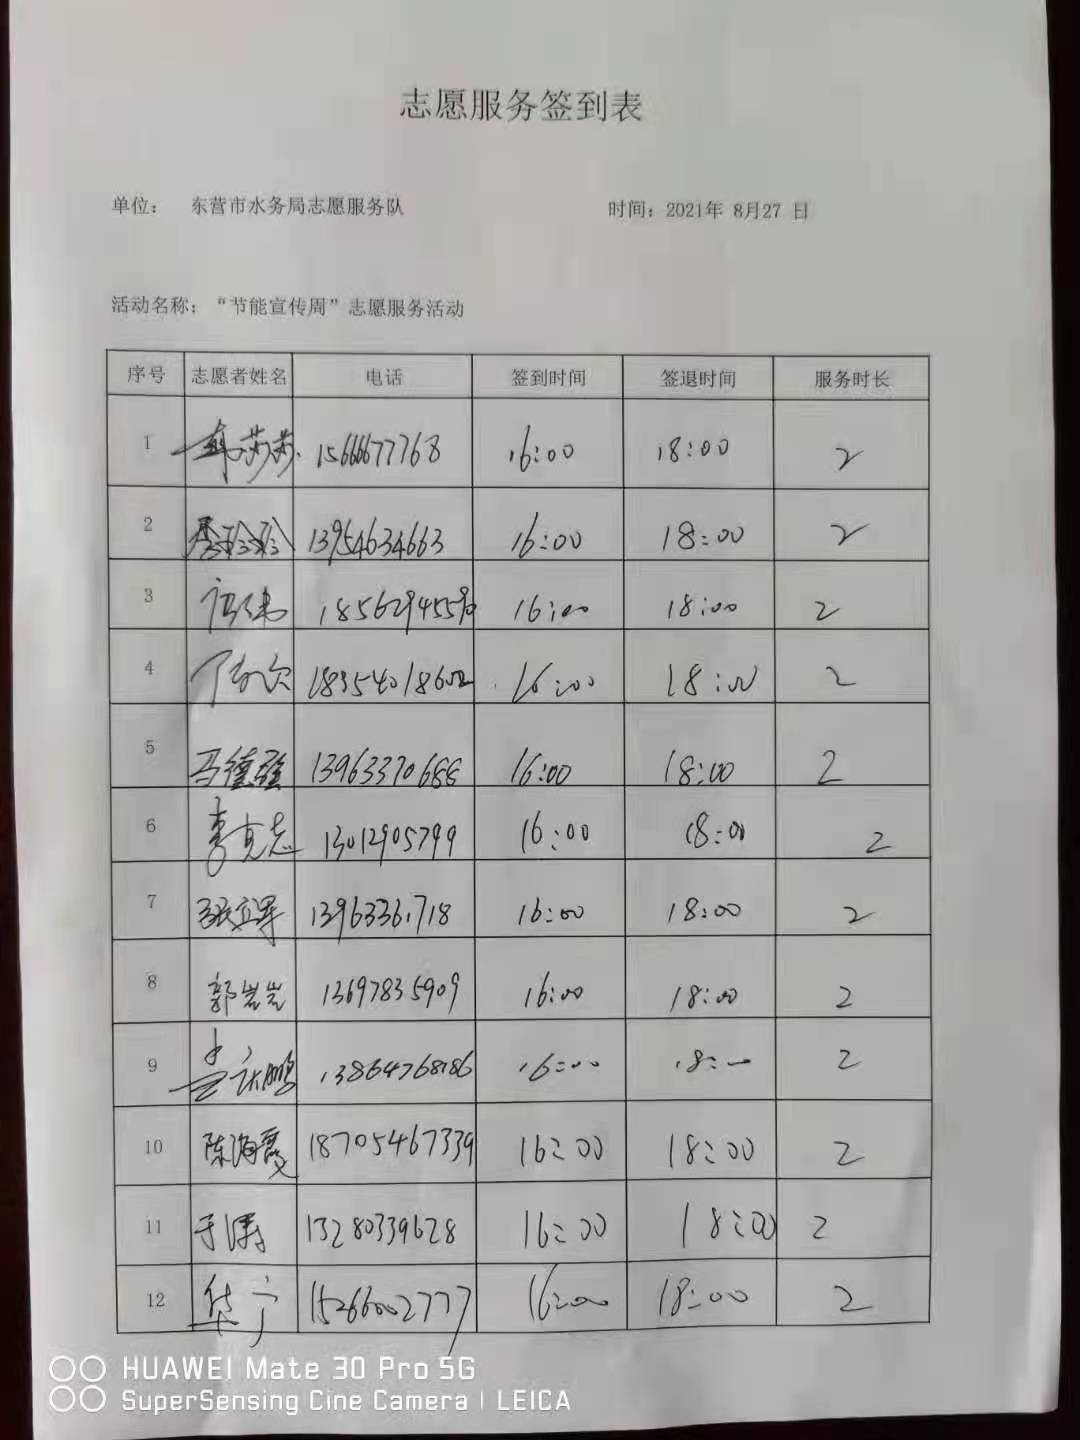 志愿服务签到表
单位： 东营市水务局志愿服务队 时间：2021年 8月27 日
活动名称：“节能宣传周”志愿服务活动
序号 志愿者姓名 电话 签到时间 签退时间 服务时长
1 15666677768 16:00 18:00 2
2 13954634663 16:00 18:00 2
3 16:00 18:00 2
4 18354018602 16:00 18:00 2
5 马德强 13963370688 16:00 18:00 2
6 李克志 13012905799 16:00 18:00 2
7 张立军 16:00 18:00 2
8 郭岩岩 13697835909 16:00 18:00 2
9 13864768186 16:00 18:00 2
10 陈海霞 18705467339 16:00 18:00 2
11 于涛 13280339628 16:00 18:00 2
12 华宁 15266002777 16:00 18:00 2
HUAWEI Mate 30 Pro 5G
SuperSensing Cine Camera | LEICA